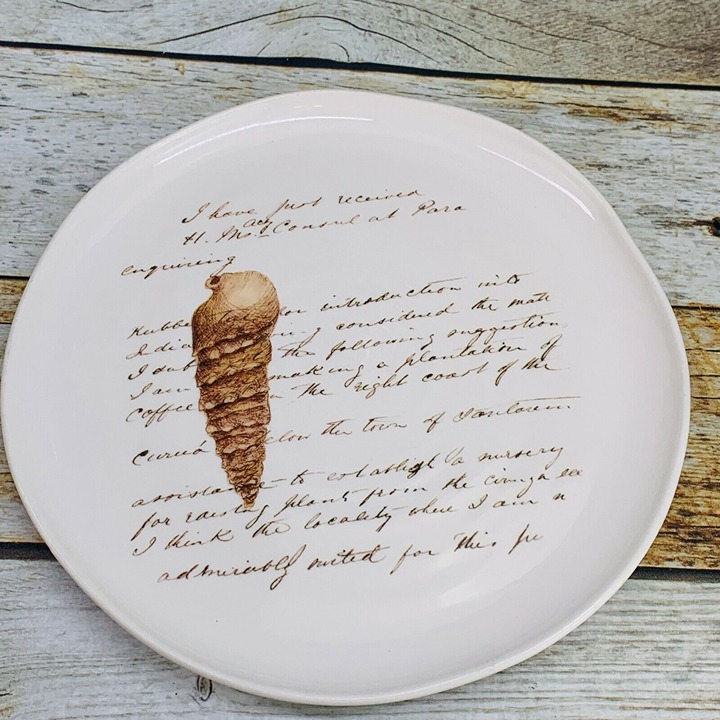 I have just received
H. M.s Consul at Para
enquiring
Rubbe on introduction into
India ing considered the matt
I sub the following suggestion
I am making a plantation of
coffee n the right coast of the
Curuá elow the town of Santarem
assistance to establish a nursery
for raising plants from the cinga se
I think the locality where I am n
admirably suited for this pu